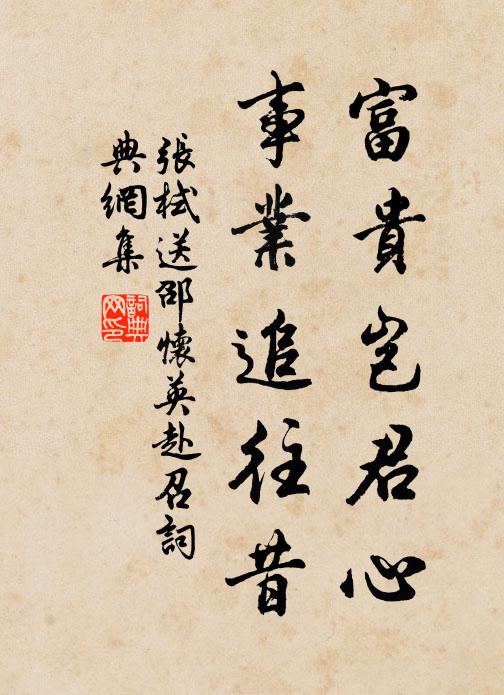 富貴豈君心
事業追往昔
張栻送邵懷英赴召詞
典網集
詞典網印